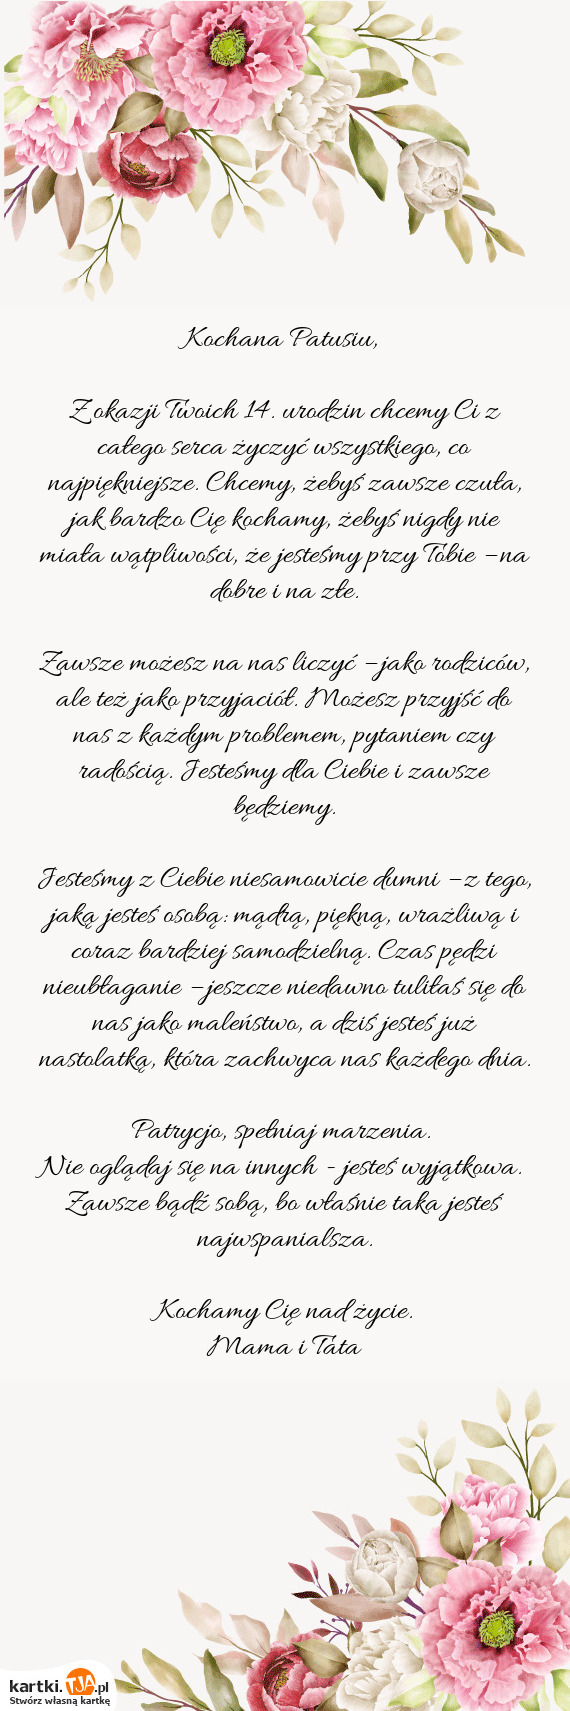 Kochana Patusiu,
Z okazji Twoich 14. urodzin chcemy Ci z
całego serca życzyć wszystkiego, co
najpiękniejsze. Chcemy, żebyś zawsze czuła,
jak bardzo Cię kochamy, żebyś nigdy nie
miała wątpliwości, że jesteśmy przy Tobie – na
dobre i na złe.
Zawsze możesz na nas liczyć – jako rodziców,
ale też jako przyjaciół. Możesz przyjść do
nas z każdym problemem, pytaniem czy
radością. Jesteśmy dla Ciebie i zawsze
będziemy.
Jesteśmy z Ciebie niesamowicie dumni – z tego,
jaką jesteś osobą: mądrą, piękną, wrażliwą i
coraz bardziej samodzielną. Czas pędzi
nieubłaganie – jeszcze niedawno tuliłaś się do
nas jako maleństwo, a dziś jesteś już
nastolatką, która zachwyca nas każdego dnia.
Patrycjo, spełniaj marzenia.
Nie oglądaj się na innych - jesteś wyjątkowa.
Zawsze bądź sobą, bo właśnie taka jesteś
najwspanialsza.
Kochamy Cię nad życie.
Mama i Tata
kartki.TJA.pl
Stwórz własną kartkę